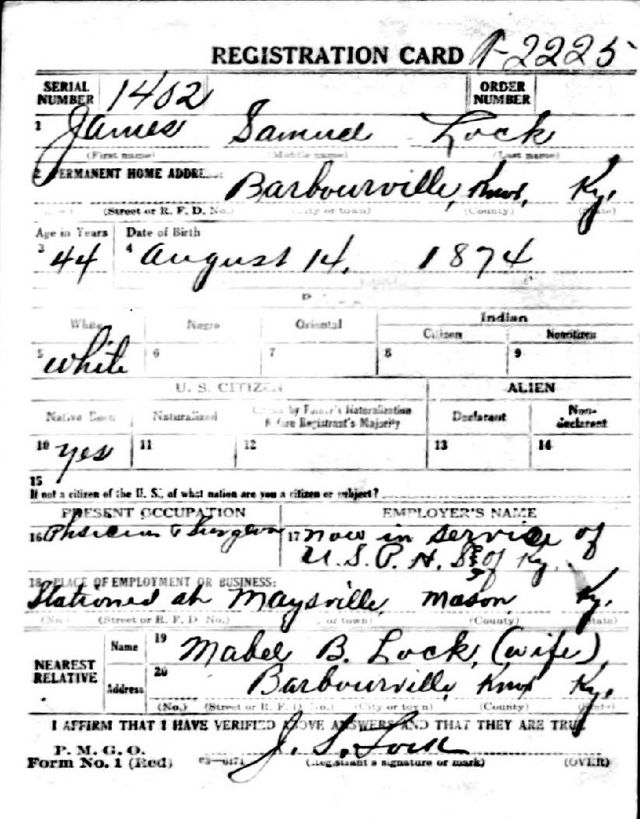 REGISTRATION CARD A-2225
SERIAL NUMBER 1402 ORDER NUMBER
1 James Samuel Lock
(First name) (Middle name) (Last name)
2 PERMANENT HOME ADDRE Barbourville, Knox, Ky.
(Street or R. F. D. No.) (City or town) (County) (State)
Age in Years Date of Birth
3 44 4 August 14, 1874
White Negro Oriental Indian
Citizen Noncitizen
5 White 6 7 8 9
U. S. CITIZEN ALIEN
Native Born Naturalized by Father's Naturalization Before Registrant's Majority Declarant Non-declarant
10 yes 11 12 13 14
15
If not a citizen of the U. S., of what nation are you a citizen or subject?
PRESENT OCCUPATION EMPLOYER'S NAME
16 Phsician & Surgeon 17 now in service of
U. S. P. H. S. of Ky.
18 PLACE OF EMPLOYMENT OR BUSINESS:
Stationed at Maysville, Mason, Ky.
(No.) (Street or R. F. D. No.) or town) (County) (State)
NEAREST RELATIVE
Name 19 Mabel B. Lock, (wife)
Address 20 Barbourville, Knox Ky.
(No.) (Street or R. F. D. No.) (City or town) (County) (State)
I AFFIRM THAT I HAVE VERIFIED ABOVE ANSWERS AND THAT THEY ARE TRUE
P. M. G. O.
Form No. 1 (Red) J. S. Lock
(Registrant's signature or mark) (OVER)